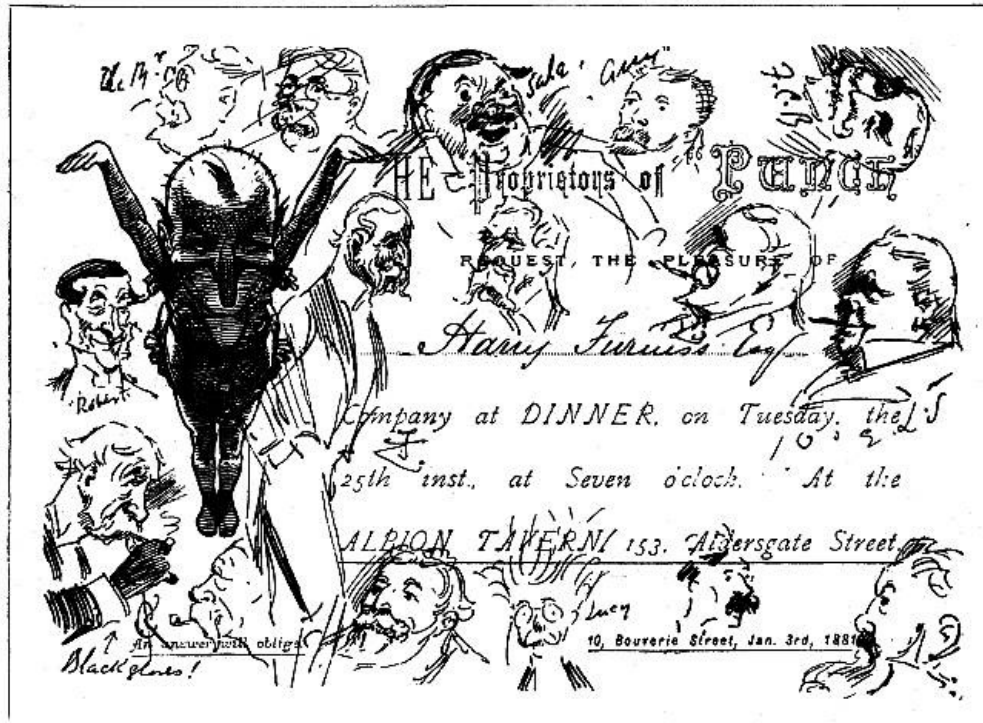 Sala
THE Proprietors of PUNCH
REQUEST, THE PLEASURE OF
Harry Furniss Esq
Robert
Company at DINNER, on Tuesday, the
25th inst., at Seven o'clock. At the
ALBION TAVERN, 153, Aldersgate Street,
Lucy
An answer will oblige.
10, Bouverie Street, Jan. 3rd, 1881
Black gloves!